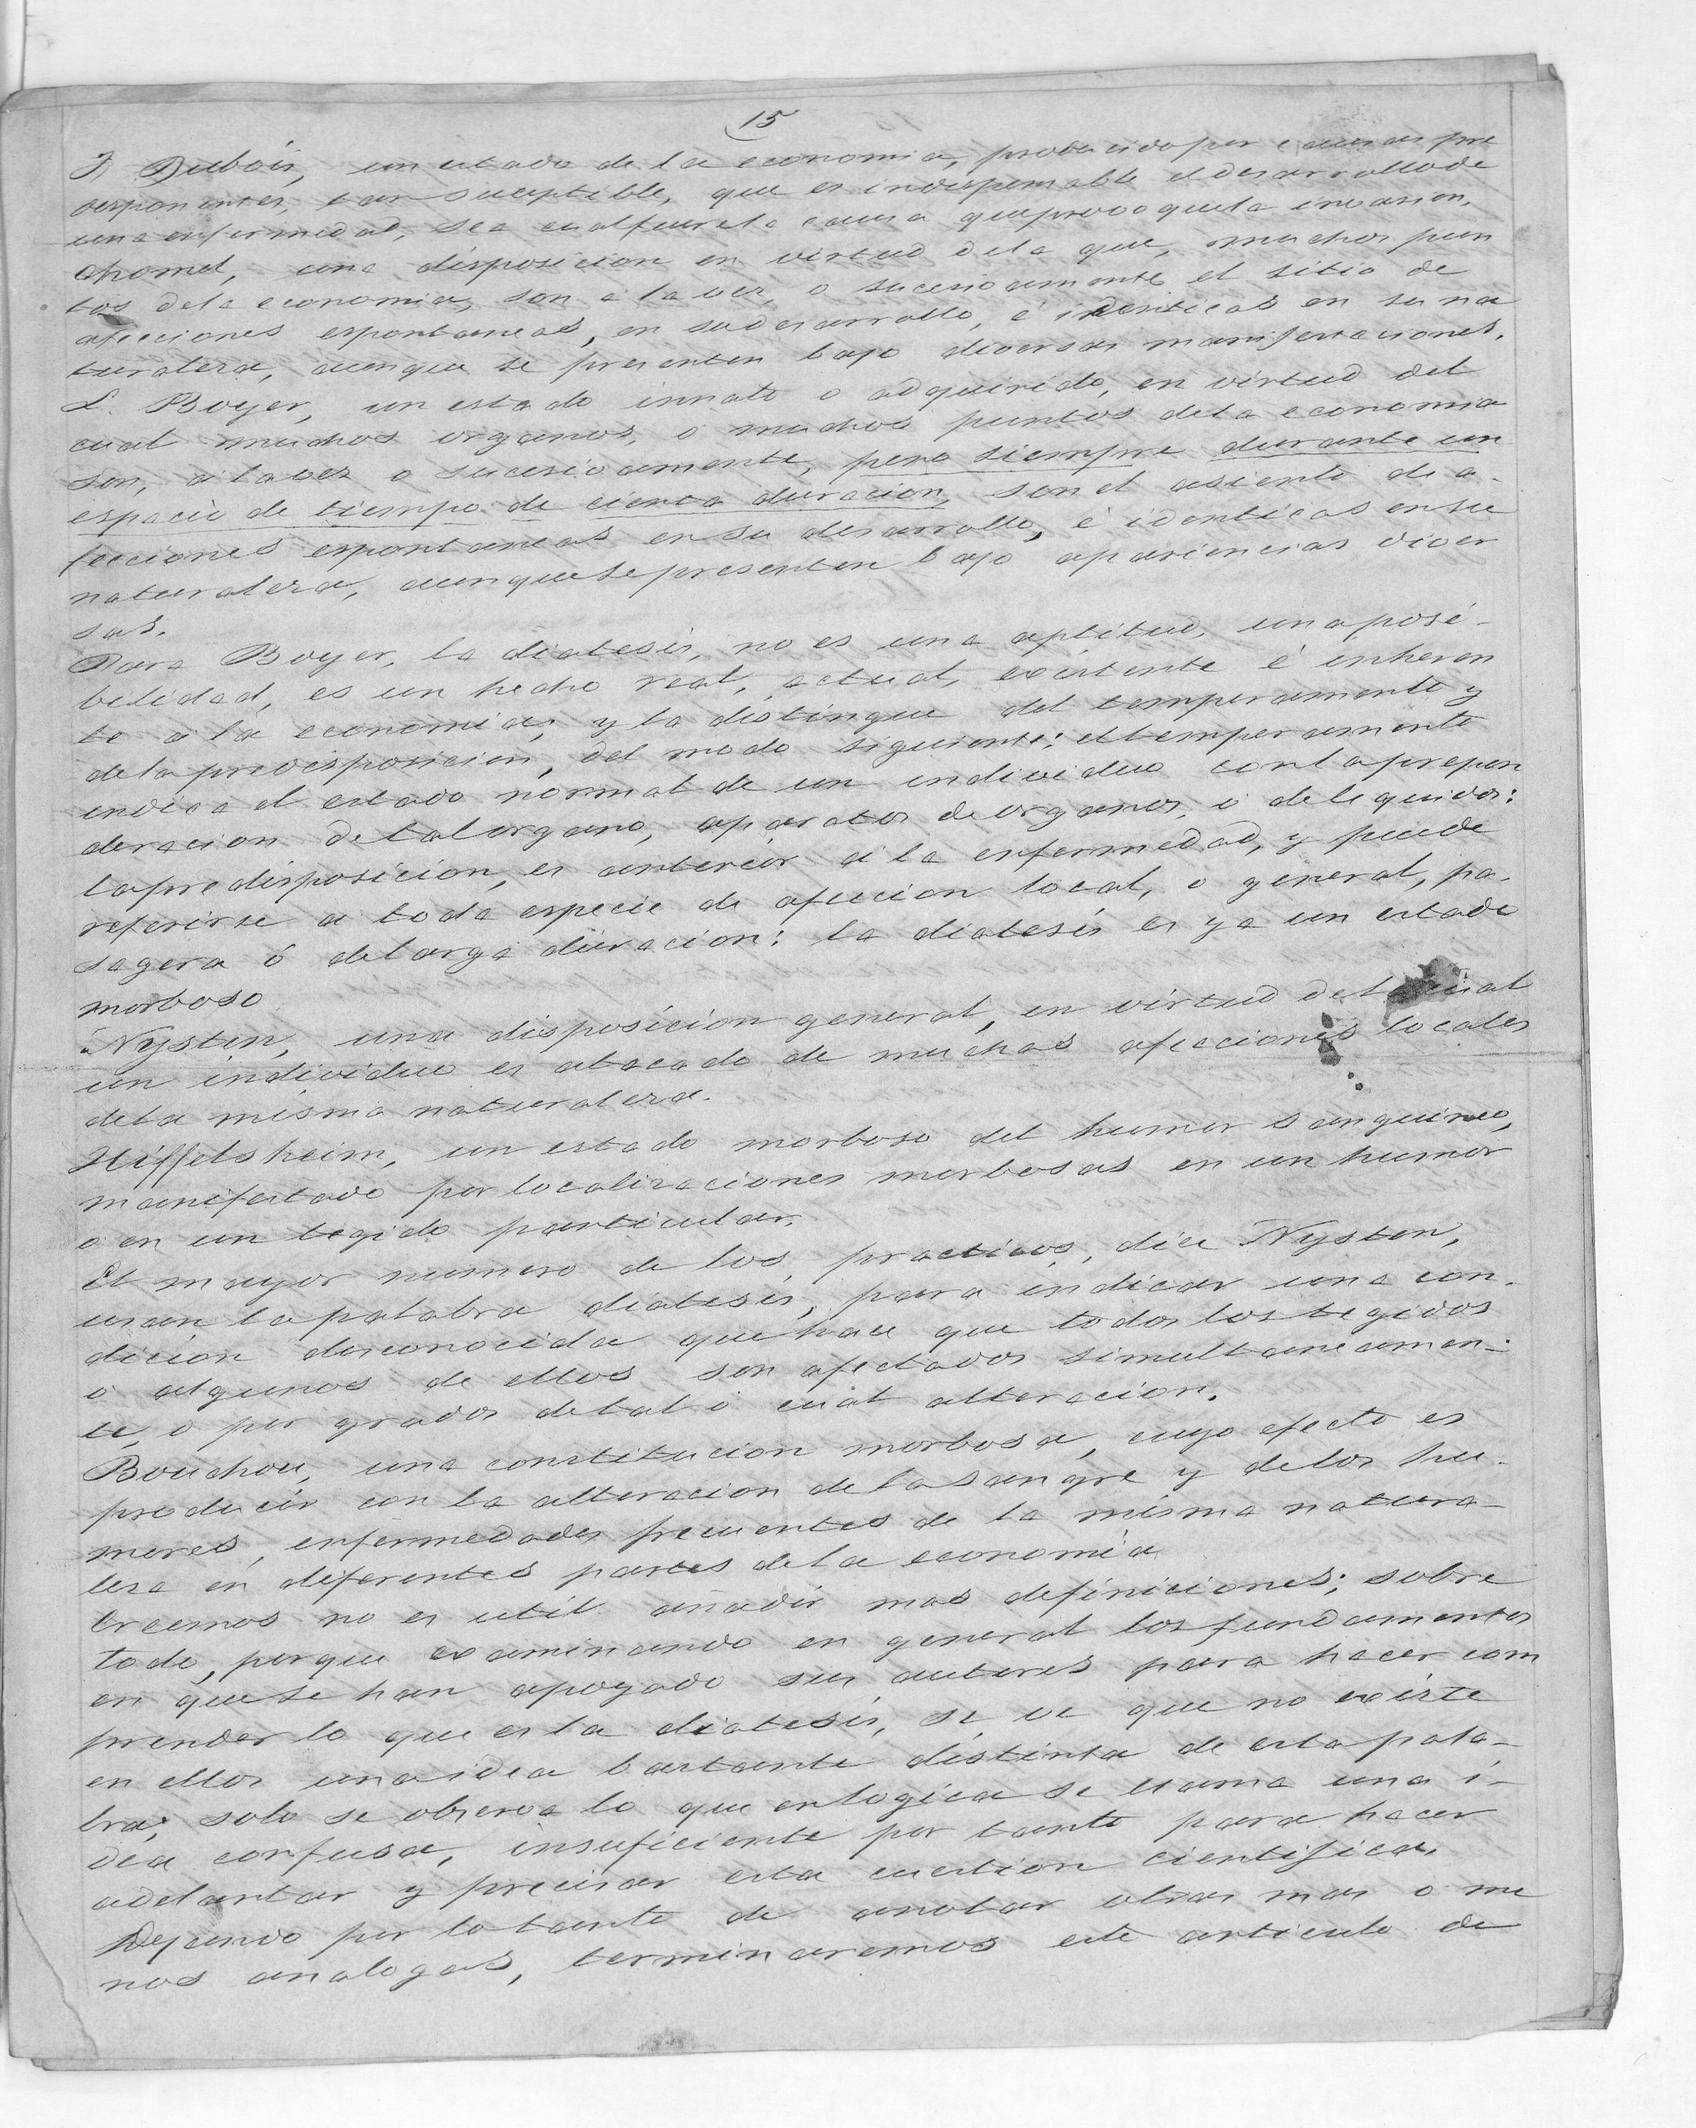 15
F Dubois, un estado de la economia, producido por causas pre
desponentes, tan suceptible, que es indispensable el desarrollo de
una enfermedad, sea cualfuere la causa que provoque la invasion.
Chomel, una disposicion en virtud dela que, muchos pun
tos dela economia, son a la vez, o sucesivamente el sitio de
afecciones espontaneas, en su desarrollo, é identicas en su na
turaleza, aunque se presenten bajo diversas manifestaciones.
L. Boyer, un estado innato o adquirido, en virtud del
cual muchos organos, o muchos puntos dela economia
son, a la vez o sucesivamente, pero siempre durante un
espacio de tiempo de cierta duracion, son el asiento de a-
fecciones espontaneas en su desarrollo, é identicas en su
naturaleza, aunque se presenten bajo apariencias diver
sas.
Para Boyer, la diatesis, no es una aptitud, una posi-
bilidad, es un hecho real, actual, existente é inheren
te a la economia; y la distingue del temperamento y
de la predisposicion, del modo siguiente: el temperamento
indica el estado normal de un individuo con la prepon
deracion de tal organo, aparatos de organos, o de liquidos:
la predisposicion, es anterior a la enfermedad, y puede
referirse a toda especie de afeccion local, o general, pa-
sagera ó de larga duracion: la diatesis es ya un estado
morboso
Nysten, una disposicion general, en virtud de la cual
un individuo es atacado de muchas afecciones locales
de la misma naturaleza.
Hiffelsheim, un estado morboso del humor sanguineo,
manifestado por localizaciones morbosas en un humor
o en un tegido particular.
El mayor numero de los practicos, dice Nysten,
usan la palabra diatesis, para indicar una con-
dicion desconocida que hace que todos los tegidos
o algunos de ellos son afectados simultaneamen-
te, o por grados de tal o cual alteracion.
Bouchou, una constitucion morbosa, cuyo efecto es
producir con la alteracion de la sangre y de los hu-
mores, enfermedades frecuentes de la misma natura-
leza en diferentes partes de la economia
Creemos no es util añadir mas definiciones; sobre
todo, porque examinando en general los fundamentos
en que se han apoyado sus autores para hacer com
prender lo que es la diatesis, se ve que no existe
en ellos una idea bastante distinta de esta pala-
bra; solo se observa lo que en logica se llama una i-
dea confusa, insuficiente por tanto para hacer
adelantar y precisar esta cuestion cientifica.
Dejando por lo tanto de anotar otras mas o me
nos analogas, terminaremos este articulo de